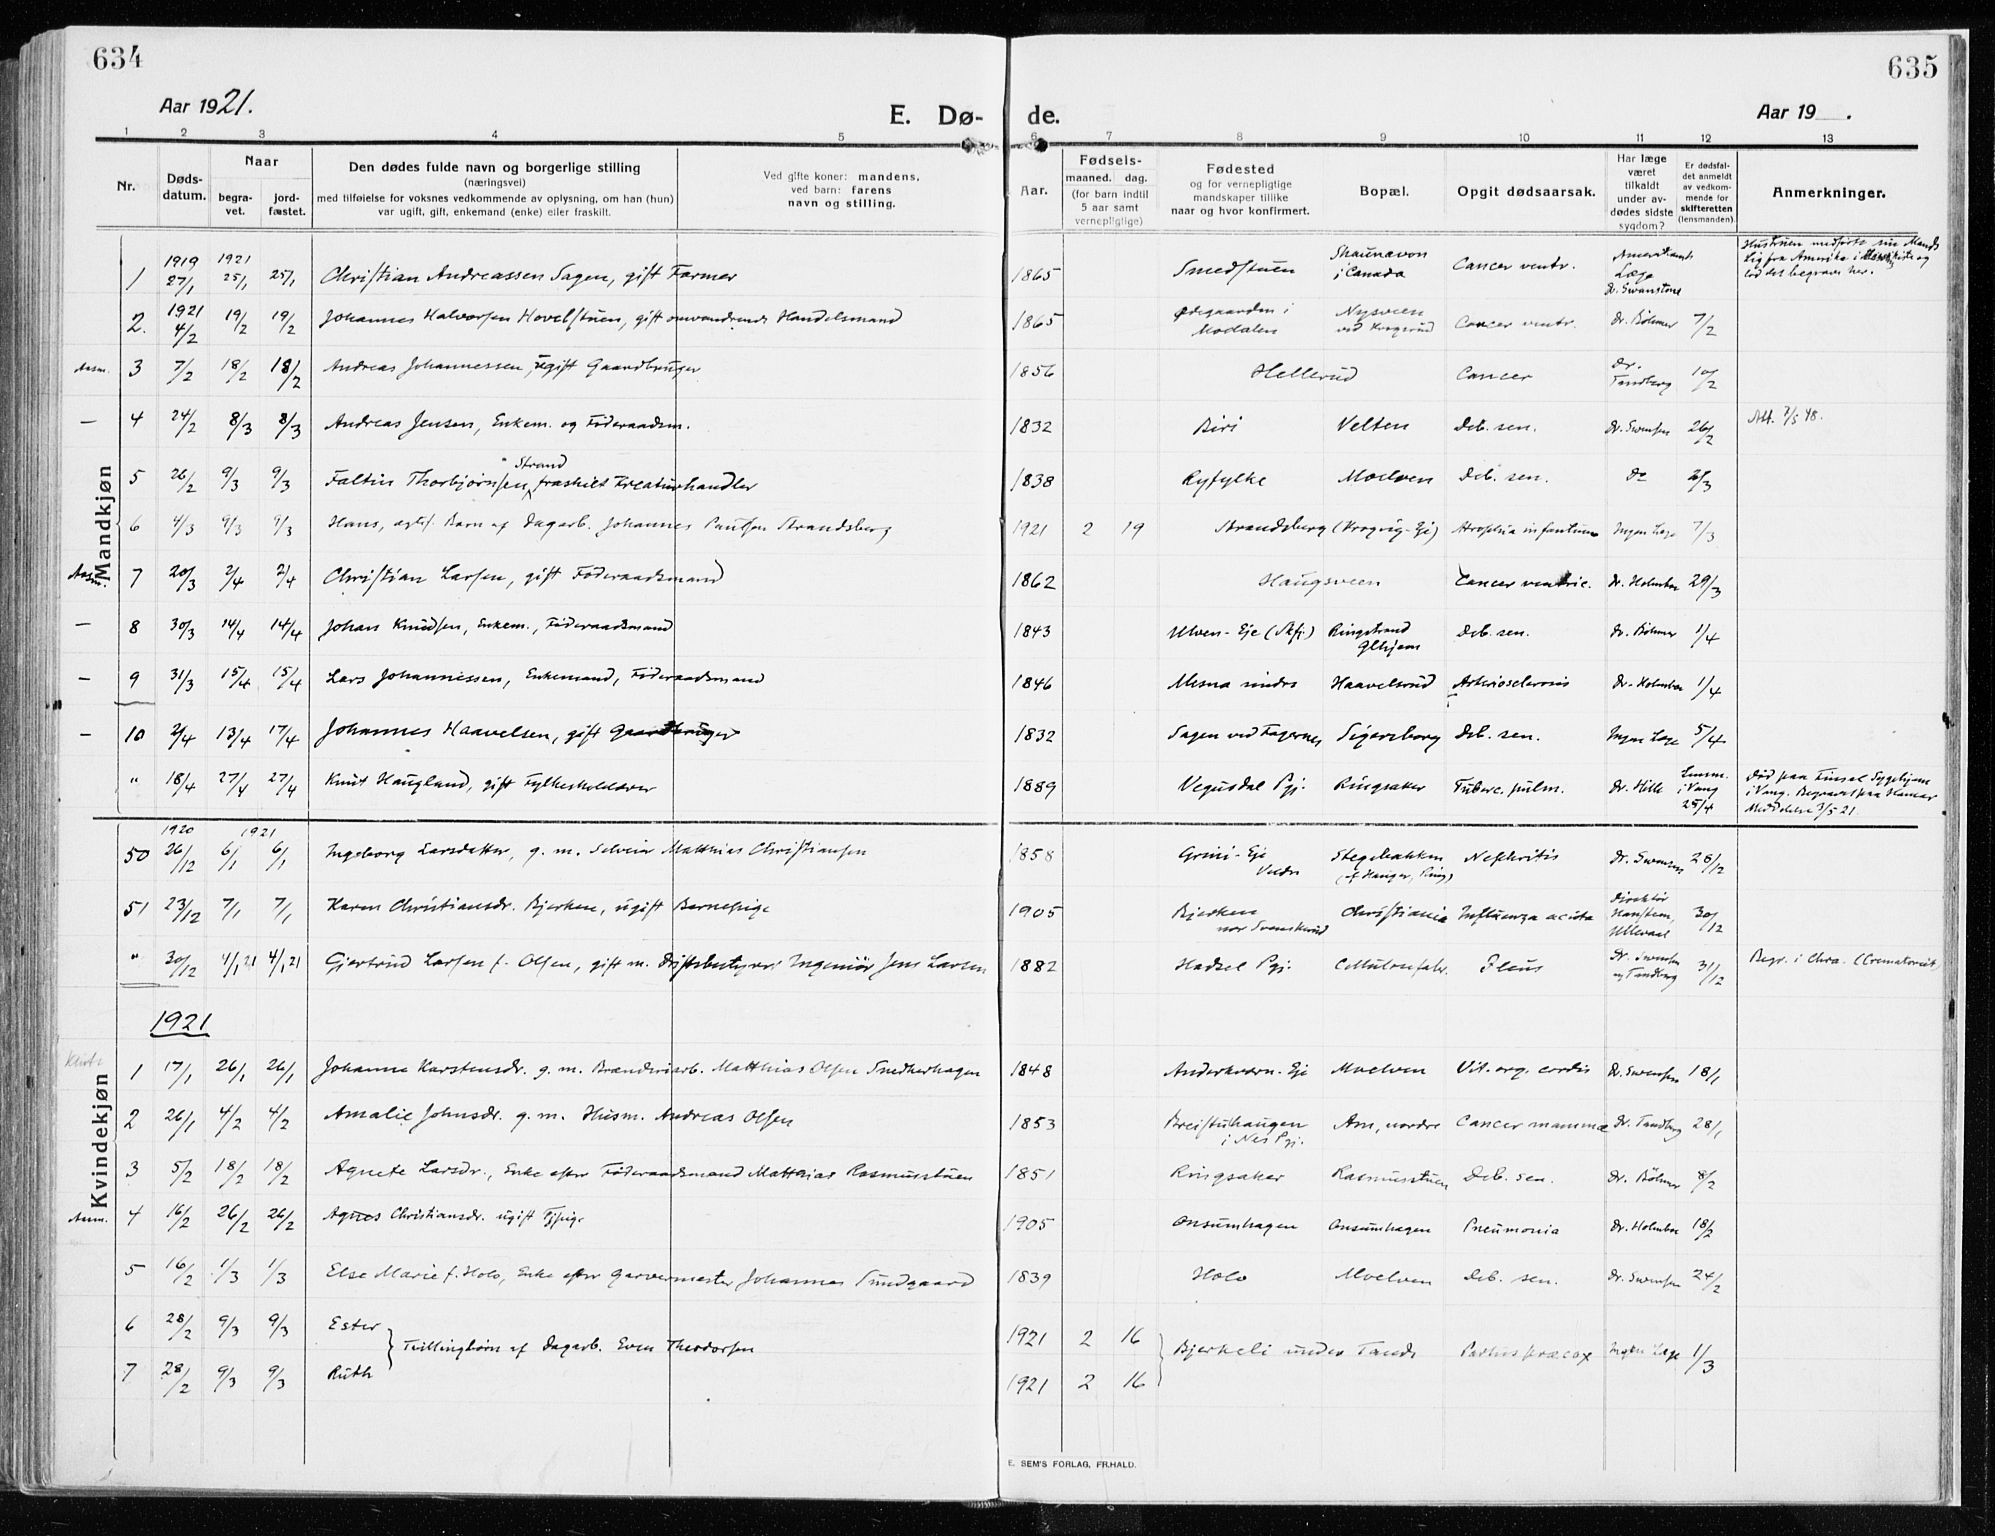 634
635
Aar 1921.
E. Dø- de.
Aar 19 .
1 2 3 4 5 6 7 8 9 10 11 12 13
Nr.
Døds-
datum.
Naar
begra-
vet.
jord-
fæstet.
Den dødes fulde navn og borgerlige stilling
(næringsvei)
med tilføielse for voksnes vedkommende av oplysning, om han (hun)
var ugift, gift, enkemand (enke) eller fraskilt.
Ved gifte koner: mandens,
ved barn: farens
navn og stilling.
Aar.
Fødsels-
maaned. dag.
(for barn indtil
5 aar samt
vernepligtige)
Fødested
og for vernepligtige
mandskaper tillike
naar og hvor konfirmert.
Bopæl.
Opgit dødsaarsak.
Har læge
været
tilkaldt
under av-
dødes sidste
sygdom?
Er dødsfal-
det anmeldt
av vedkom-
mende for
skifteretten
(lensmanden).
Anmerkninger.
Mandkjøn
1 1919 27/1 1921 25/1 25/1 Christian Andreassen Sagen, gift Farmer 1865 Smedstuen Shaunavon i Canada Cancer ventr. Læge Dr. Swanstone Hustruen medførte sin Mands Lig fra Amerika i og lod det begrave her.
2. 1921 4/2 19/2 19/2 Johannes Halvorsen Hovelstuen, gift omvandrende Handelsmand 1865 Ødegaarden i Modalen Nysveen ved Krogsrud Cancer ventr. Dr. Böhmer 7/2
3 7/2 18/2 18/2 Andreas Johannessen, ugift Gaardbruger 1856 Hellerud Cancer Dr. Tandberg 10/2
— 4 24/2 8/3 8/3 Andreas Jensen, Enkem. og Føderaadsm. 1832 Biri Velten Deb. sen. Dr. Swensen 26/2 Att. 7/5 48.
5 26/2 9/3 9/3 Faltin Thorbjørnsen Strand, fraskilt Kreaturhandler 1838 Ryfylke Moelven Deb. sen. Do 2/3
6 4/3 9/3 9/3 Hans, ægtef. Barn af Dagarb. Johannes Paulsen Strandsberg 1921 2 19 Strandsberg (Krogvig-Eje) Atrophia infantum Ingen Læge 7/3
7 20/3 2/4 2/4 Christian Larsen, gift Føderaadsmand 1862 Haugsveen Cancer ventric. Dr. Holmboe 29/3
— 8 30/3 14/4 14/4 Johan Knudsen, Enkem., Føderaadsmand 1843 Ulven-Eje Ringstrand Deb. sen. Dr. Böhmer 1/4
— 9 31/3 15/4 15/4 Lars Johannessen, Enkemand, Føderaadsmand 1846 Mesna nindre Haavelsrud Arteriosclerosis Dr. Holmboe 1/4
— 10 2/4 13/4 17/4 Johannes Haavelsen, gift Gaardbruger 1832 Sagen ved Fagernes Sigersborg Deb. sen. Ingen Læge 5/4
" 18/4 27/4 27/4 Knut Haugland, gift Fylkesskolelærer 1889 Vegusdal Pgj. Ringsaker Tuberc. pulm. Dr. Hille Lensm. i Vang 25/4 Død paa Finsal Sygehjem i Vang. Begravet paa Hamar Meddelelse 3/5 21.
Kvindekjøn
50 1920 26/12 1921 6/1 6/1 Ingeborg Larsdatter, g. m. Selveier Matthias Christiansen 1858 Grini-Eje Stegebakken Nephritis Dr. Swensen 28/12
51 23/12 7/1 7/1 Karen Christiansdr. Bjerken, ugift Barnepige 1905 Bjerken nor Svenskerud Christiania Influenza acuta Direktør Ullevaal 30/12
" 30/12 4/1 21 4/1 21 Gjertrud Larsen f. Olsen, gift m. Driftsbestyrer Ingeniør Jens Larsen 1882 Hadsel Pgj. Cellulosefabr. Ileus Dr. Swensen og Tandberg 31/12 Begr. i Chra. (Crematoriet)
1921
1 17/1 26/1 26/1 Johanne Karstensdr. g. m. Brænderiarb. Matthias Olsen Snedkerhagen 1848 Anderkværn-Eje Moelven Vit. org. cordis Dr. Swensen 18/1
2 26/1 4/2 4/2 Amalie Johnsdr. g. m. Husm. Andreas Olsen 1853 Breistuhaugen i Nes Pgj. Am, nordre Cancer mammæ Dr. Tandberg 28/1
3 5/2 18/2 18/2 Agnete Larsdr., Enke efter Føderaadsmand Matthias Rasmusstuen 1851 Ringsaker Rasmusstuen Deb. sen. Dr. Böhmer 8/2
4 16/2 26/2 26/2 Agnes Christiansdr. ugift Tjpige 1905 Onsumhagen Onsumhagen Pneumonia Dr. Holmboe 18/2
5 16/2 1/3 1/3 Else Marie f. Holo, Enke efter Garvermester Johannes Sundgaard 1839 Holo Moelven Deb. sen. Dr. Swensen 24/2
6 28/2 9/3 9/3 Ester 1921 2 16
Tvillingbørn af Dagarb. Even Theodorsen Bjerkeli under Tande Partus præcox Ingen Læge 1/3
7 28/2 9/3 9/3 Ruth 1921 2 16
E. SEM'S FORLAG, FR.HALD.